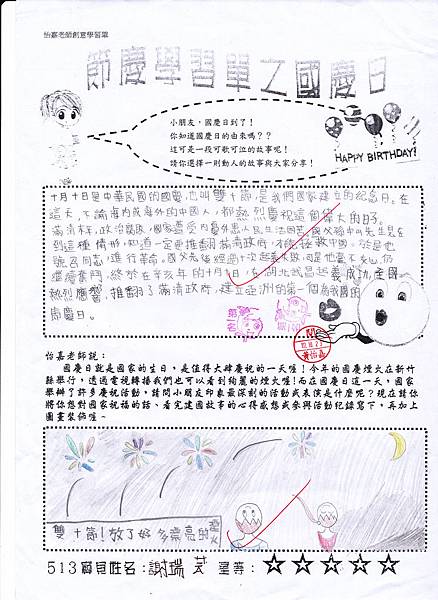 怡嘉老師創意學習單
節慶學習單之國慶日
小朋友，國慶日到了！
你知道國慶日的由來嗎？？
這可是一段可歌可泣的故事呢！
請你選擇一則動人的故事與大家分享！
HAPPY BIRTHDAY!
十月十日是中華民國的國慶，也叫雙十節，是我們國家建立的紀念日。在
這天，不論海內或海外的中國人，都熱烈慶祝這個偉大的日子。
滿清末年，政治腐敗，國家遭受內憂外患，人民生活困苦，國父孫中山先生見
到這種情形，知道一定要推翻滿清政府，才能拯救中國，於是他
號召同志，進行革命。國父先後經過十次起義失敗，可是他並不灰心，仍
繼續奮鬥，終於在辛亥年的十月十日，在湖北武昌起義成功，全國
熱烈響應，推翻了滿清政府，建立亞洲的第一個
國慶日。
第一名
黃怡嘉
怡嘉老師說：
國慶日就是國家的生日，是值得大肆慶祝的一天喔！今年的國慶煙火在新竹
縣舉行，透過電視轉播我們也可以看到絢麗的煙火喔！而在國慶日這一天，國家
舉辦了許多慶祝活動，請問小朋友印象最深刻的活動或表演是什麼呢？現在請你
將你想對國家祝福的話、看完建國故事的心得感想或參與活動紀錄寫下，再加上
圖畫裝飾喔~
雙十節！放了好多漂亮的煙火
513寶貝姓名：謝瑞芠 星等：☆☆☆☆☆